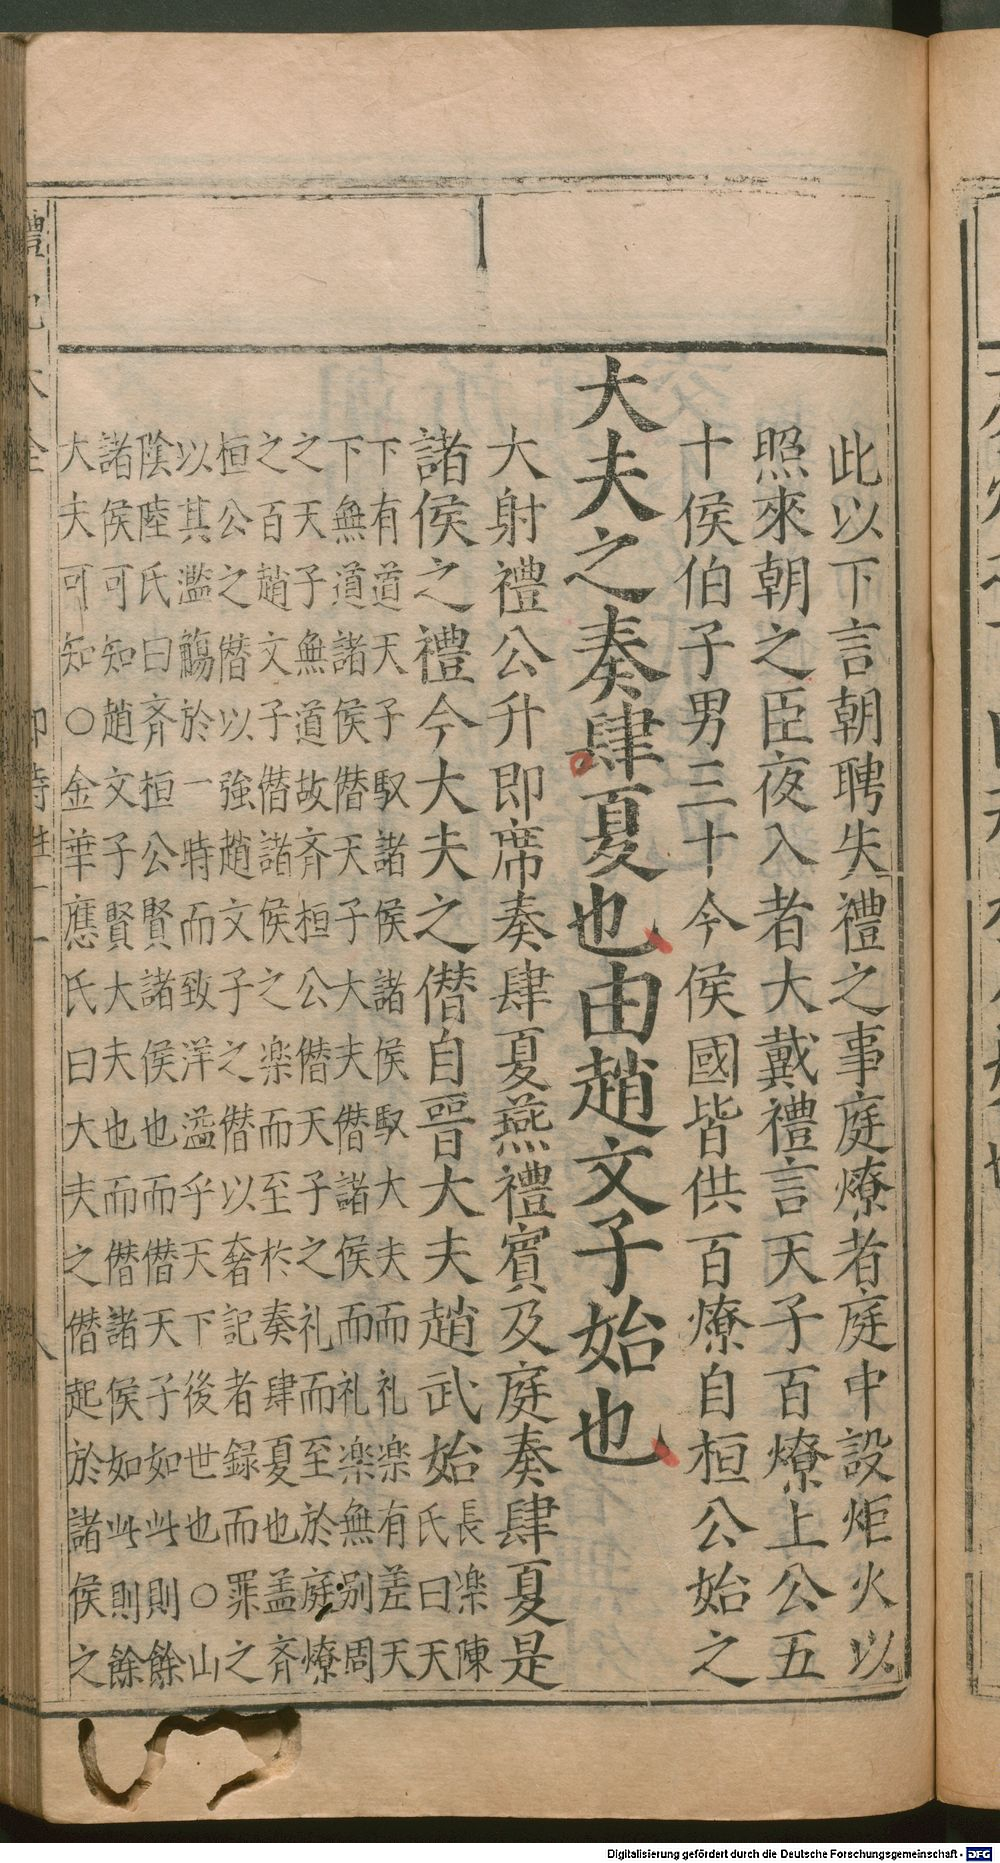 此以下言朝聘失禮之事庭燎者庭中設炬火以
照來朝之臣夜入者大戴禮言天子百燎上公五
十侯伯子男三十今侯國皆供百燎自桓公始之
大夫之奏肆夏也由趙文子始也
大射禮公升即席奏肆夏燕禮賓及庭奏肆夏是
諸侯之禮今大夫之僭自晉大夫趙武始
長楽陳
氏曰天
下有道天子馭諸侯諸侯馭大夫而礼楽有差天
下無道諸侯僭天子大夫僭諸侯而礼楽無别周
之天子無道故斉桓公僭天子之礼而至於庭燎
之百趙文子僭諸侯之楽而至於奏肆夏也盖斉
桓公之僭以強趙文子之僭以奢記者録而罪之
以其濫觴於一時而致洋溢乎天下後世也○山
陰陸氏曰斉桓公賢諸侯也而僭天子如此則餘
諸侯可知趙文子賢大夫也而僭諸侯如此則餘
大夫可知○金華應氏曰大夫之僭起於諸侯之
Digitalisierung gefördert durch die Deutsche Forschungsgemeinschaft - DFG